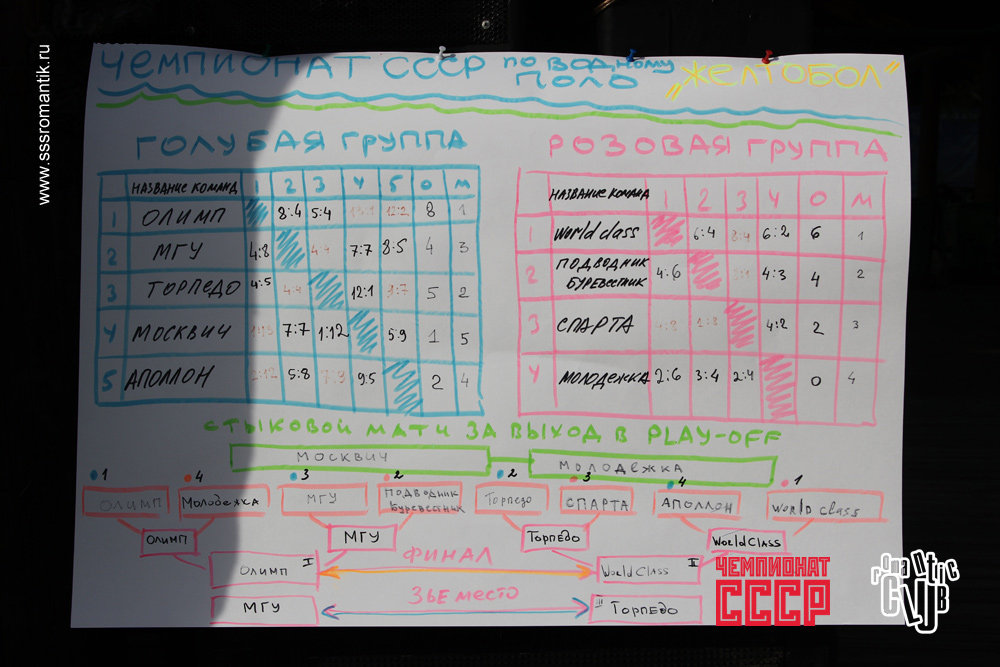 www.sssromantik.ru
ЧЕМПИОНАТ СССР ПО ВОДНОМУ ПОЛО „ЖЕЛТОБОЛ"
ГОЛУБАЯ ГРУППА
НАЗВАНИЕ КОМАНД 1 2 3 4 5 О М
1 ОЛИМП 8:4 5:4 12:2 8 1
2 МГУ 4:8 4:4 7:7 8:5 4 3
3 ТОРПЕДО 4:5 4:4 12:1 9:7 5 2
4 МОСКВИЧ 1:13 7:7 1:12 5:9 1 5
5 АПОЛЛОН 2:12 5:8 7:9 9:5 2 4
РОЗОВАЯ ГРУППА
НАЗВАНИЕ КОМАНД 1 2 3 4 О М
1 World class 6:4 8:4 6:2 6 1
2 ПОДВОДНИК БУРЕВЕСТНИК 4:6 4:3 4 2
3 СПАРТА 4:8 4:2 2 3
4 МОЛОДЕЖКА 2:6 3:4 2:4 0 4
СТЫКОВОЙ МАТЧ ЗА ВЫХОД В PLAY-OFF
МОСКВИЧ МОЛОДЁЖКА
1 4 3 2 2 3 4 1
ОЛИМП Молодежка МГУ ПОДВОДНИК Буревестник Торпедо СПАРТА АПОЛЛОН World class
ОЛИМП МГУ Торпедо WorldClass
ФИНАЛ
ОЛИМП I WorldClass II
3ЬЕ МЕСТО
МГУ III Торпедо
ЧЕМПИОНАТ
СССР
романтіс
CLUB